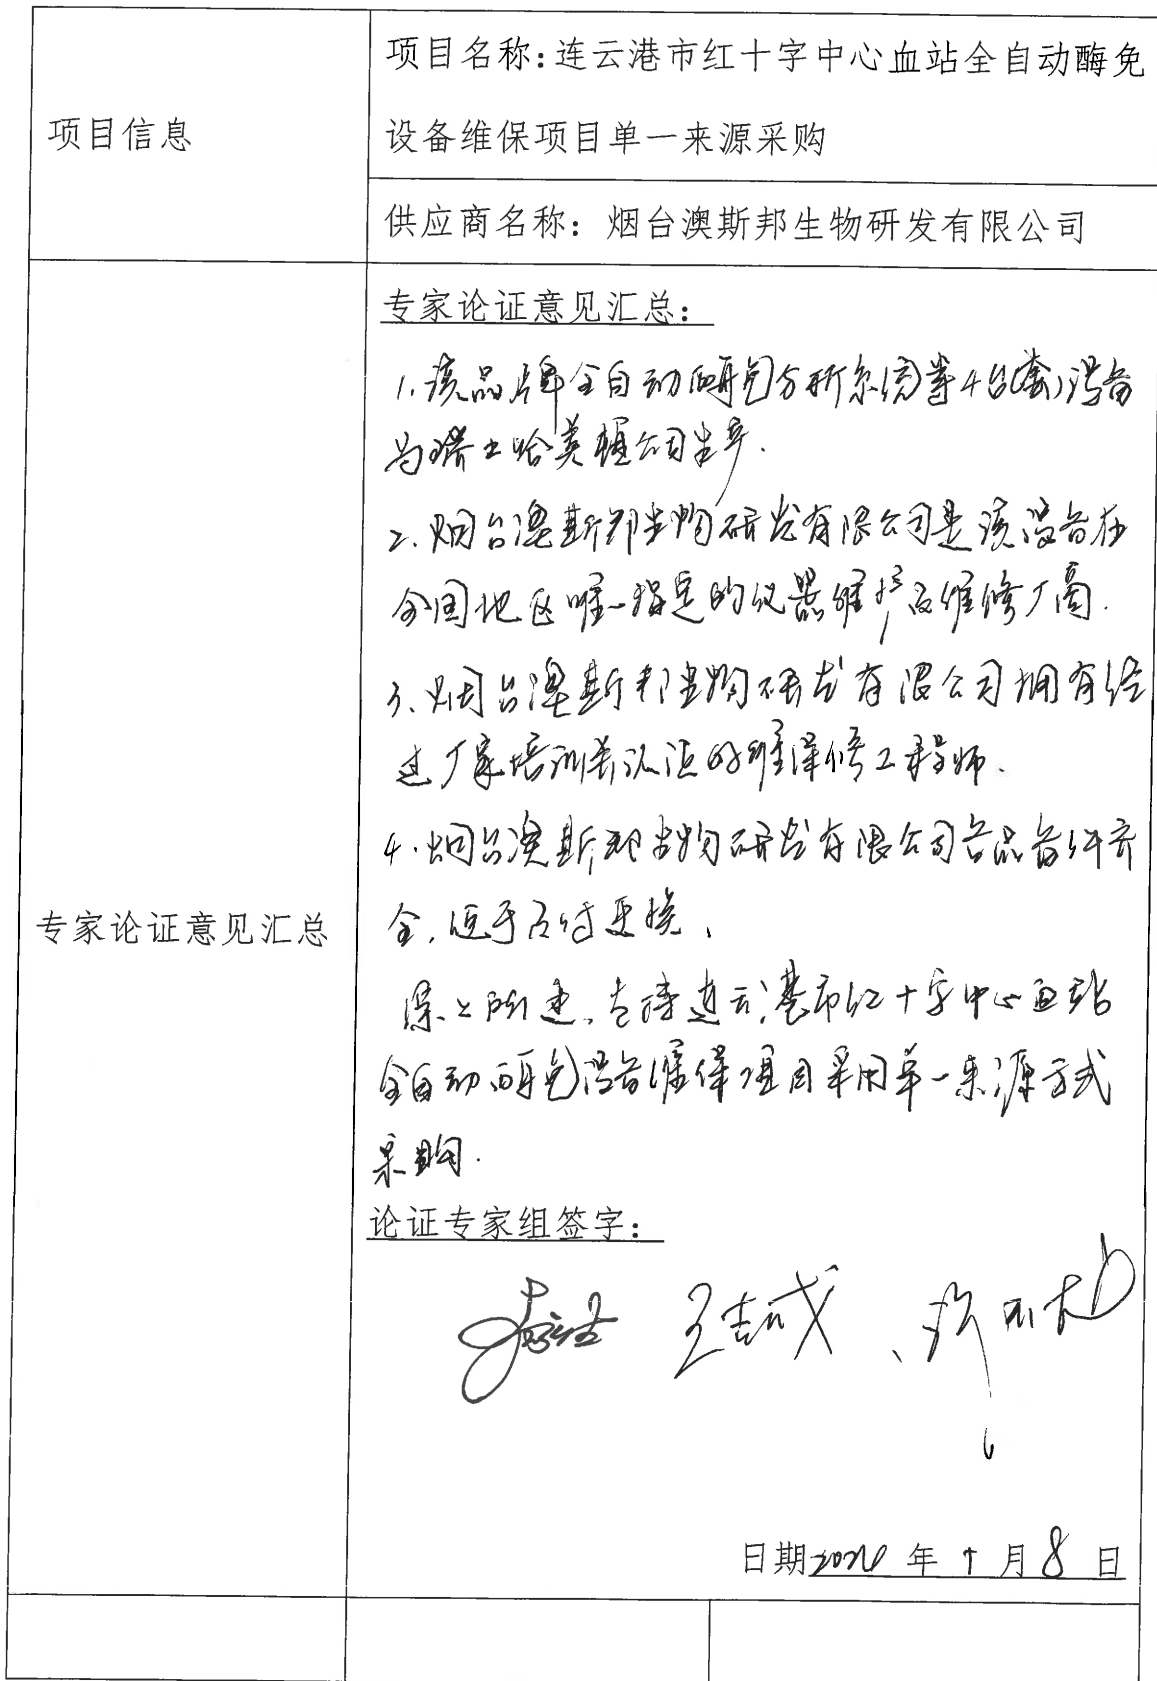 项目信息
项目名称:连云港市红十字中心血站全自动酶免
设备维保项目单一来源采购
供应商名称：烟台澳斯邦生物研发有限公司
专家论证意见汇总
专家论证意见汇总：
1.该品牌全自动酶免分析系统等4台(套)设备
为瑞士哈美顿公司生产.
2.烟台澳斯邦生物研发有限公司是该设备在
全国地区唯一指定的仪器维护及维修厂商.
3、烟台澳斯邦生物研发有限公司拥有经
过厂家培训并认证的维修工程师、
4.烟台澳斯邦生物研发有限公司备品备件齐
全,便于及时更换、
综上所述、支持连云港市红十字中心血站
全自动酶免设备维保项目采用单一来源方式
采购.
论证专家组签字：
日期 年 月8日